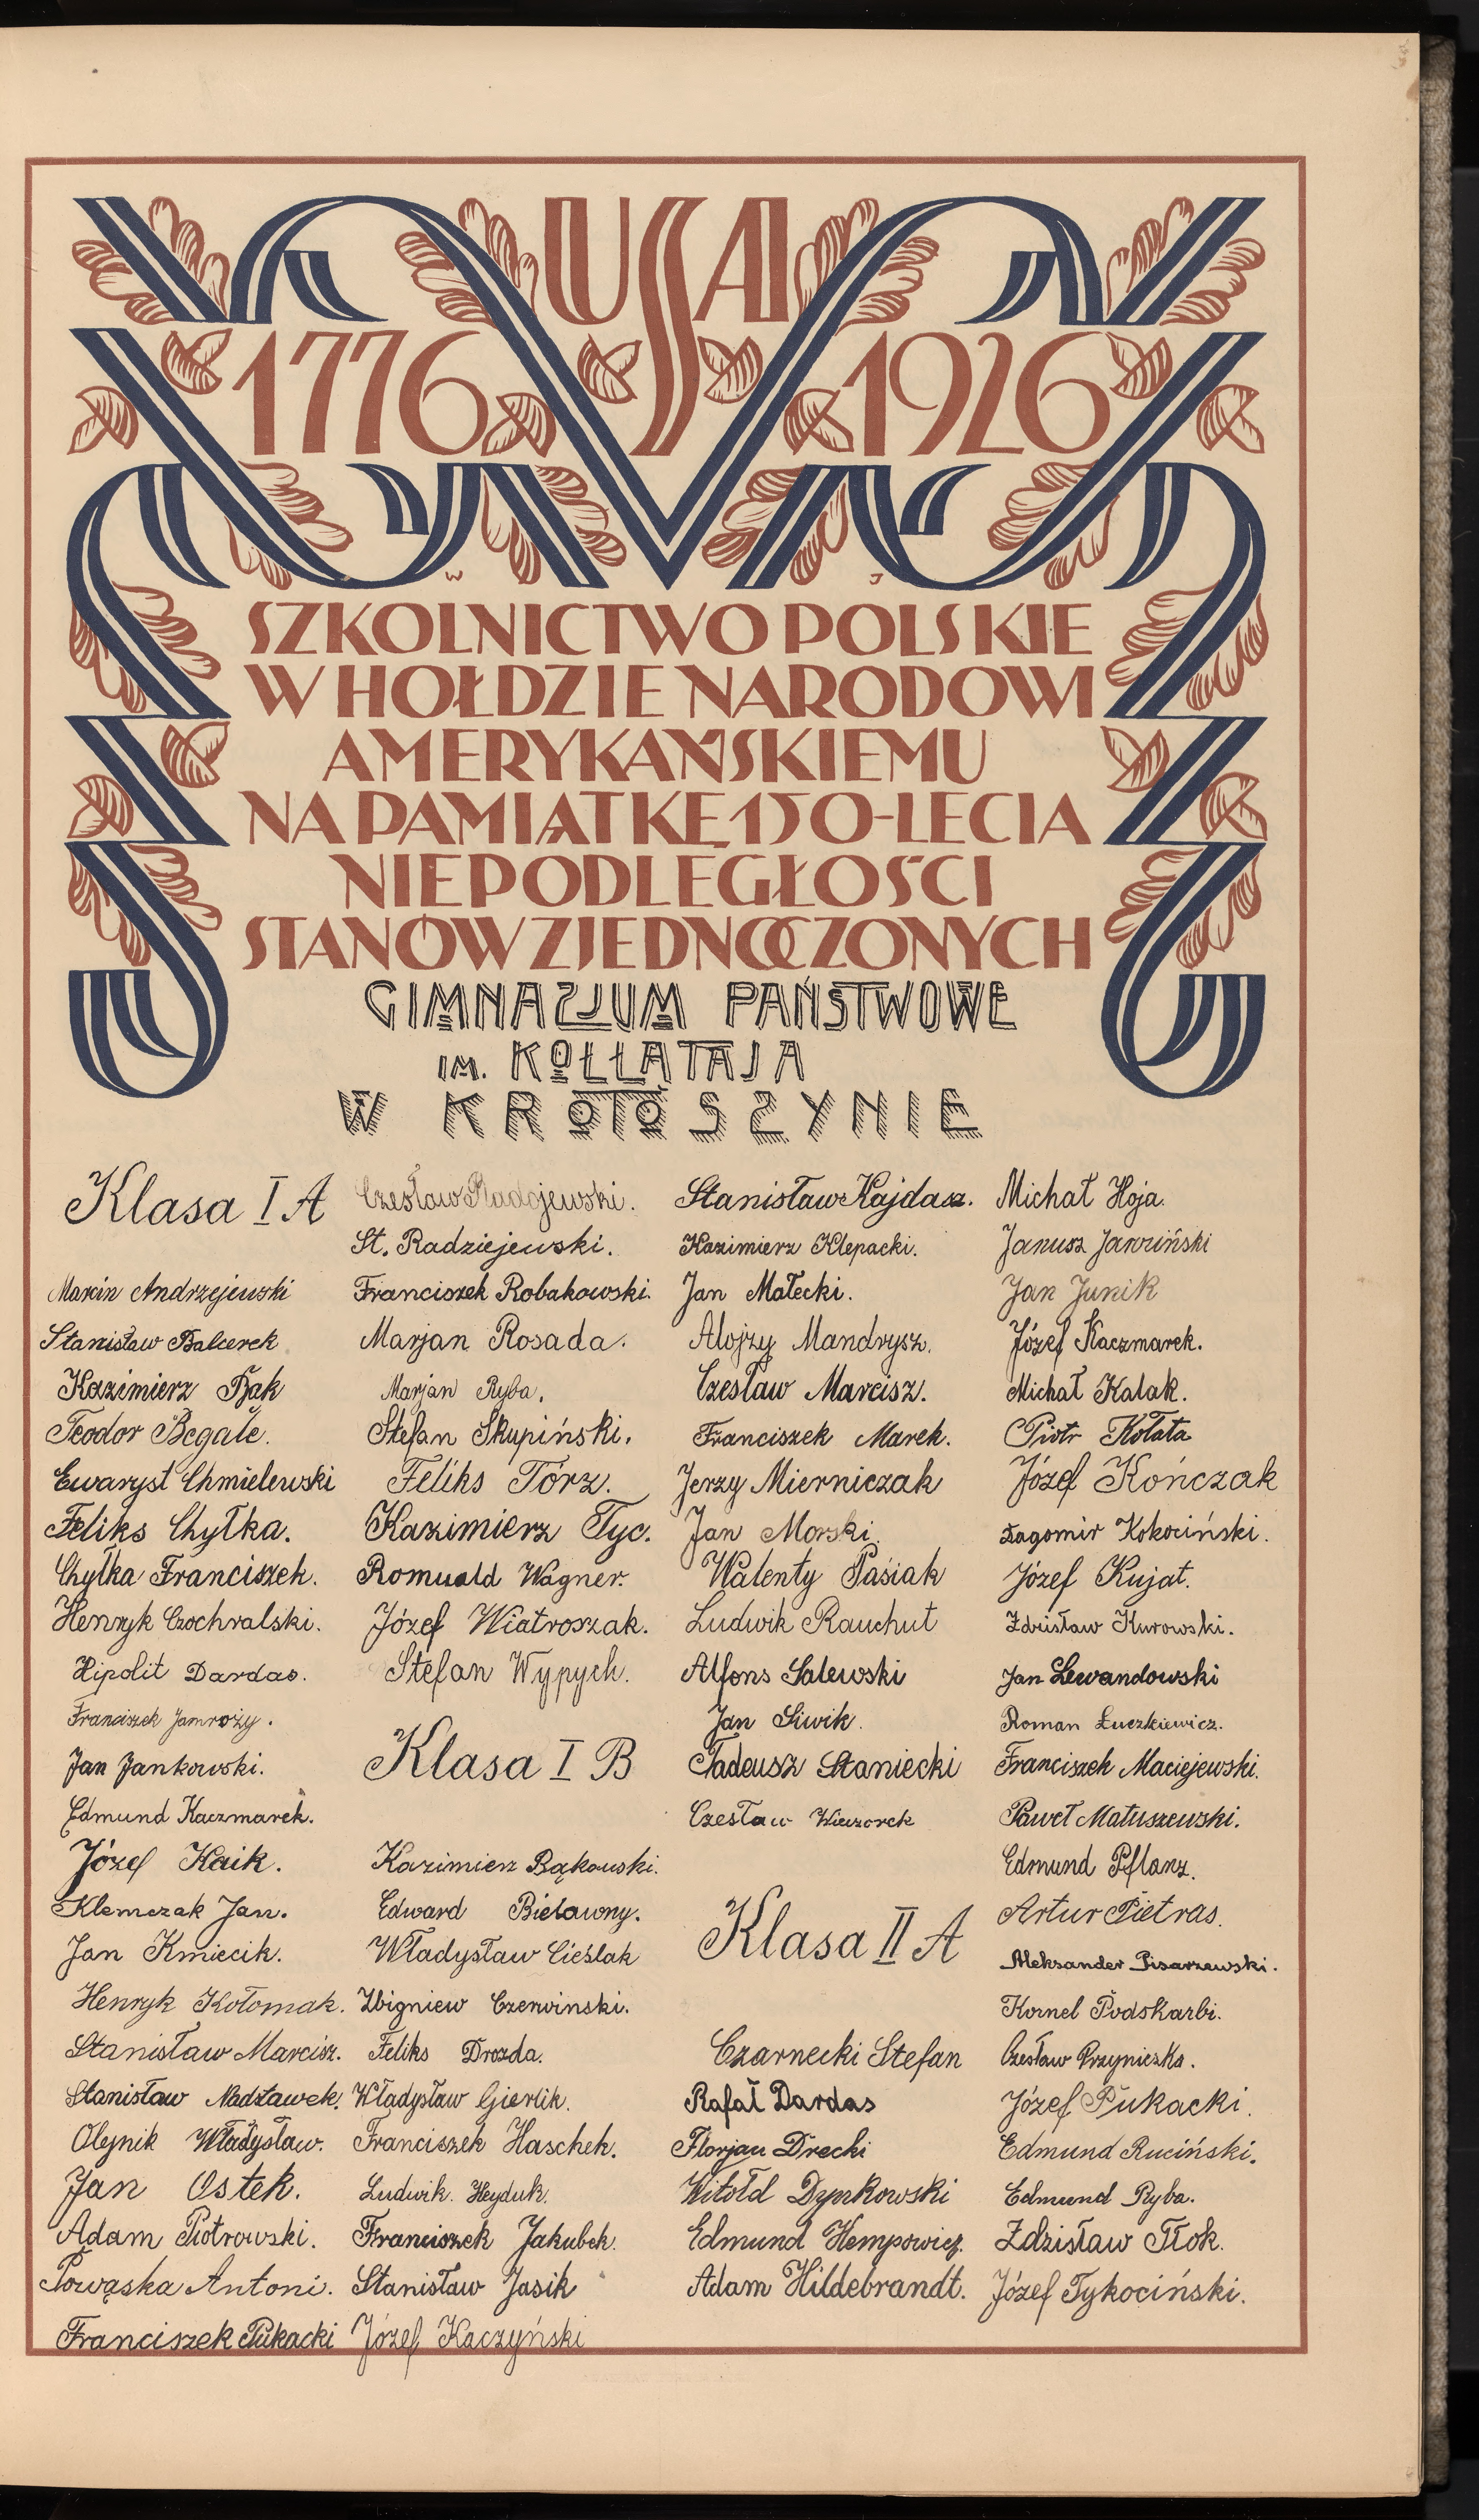 USA
1776 1926
W J
SZKOLNICTWO POLSKIE
W HOŁDZIE NARODOWI
AMERYKAŃSKIEMU
NA PAMIĄTKĘ 150-LECIA
NIEPODLEGŁOŚCI
STANÓW ZJEDNOCZONYCH
GIMNAZJUM PAŃSTWOWE
IM. KOŁŁĄTAJA
W KROTOSZYNIE
Klasa I A
Marcin Andrzejewski
Stanisław Balcerek
Kazimierz Bąk
Teodor Begale.
Ewaryst Chmielewski
Feliks Chyłka.
Chyłka Franciszek.
Henryk Czochralski.
Hipolit Dardas.
Franciszek Jamroży.
Jan Jankowski.
Edmund Kaczmarek.
Józef Kaik.
Klemczak Jan.
Jan Kmiecik.
Henryk Kołomak.
Stanisław Marcisz.
Stanisław Nadstawek.
Olejnik Władysław.
Jan Ostek.
Adam Piotrowski.
Powąska Antoni.
Franciszek Pukacki
Czesław Radojewski.
St. Radziejewski.
Franciszek Robakowski.
Marjan Rosada.
Marjan Ryba.
Stefan Skupiński.
Feliks Törz.
Kazimierz Tyc.
Romuald Wagner.
Józef Wiatroszak.
Stefan Wypych.
Klasa I B
Kazimierz Bąkowski.
Edward Bielawny.
Władysław Cieślak
Zbigniew Czerwinski.
Feliks Drozda.
Władysław Gierlik.
Franciszek Haschek.
Ludwik Heyduk.
Franciszek Jakubek.
Stanisław Jasik
Józef Kaczyński
Stanisław Kajdasz.
Kazimierz Klepacki.
Jan Małecki.
Alojzy Mandrysz.
Czesław Marcisz.
Franciszek Marek.
Jerzy Mierniczak
Jan Morski.
Walenty Paśiak
Ludwik Rauchut
Alfons Salewski
Jan Siwik.
Tadeusz Staniecki
Czesław Wieczorek
Klasa II A
Czarnecki Stefan
Rafał Dardas
Florjan Drecki
Witołd Dynkowski
Edmund Hempowicz.
Adam Hildebrandt.
Michał Hoja.
Janusz Jarziński
Jan Junik
Józef Kaczmarek.
Michał Kalak.
Piotr Kołata
Józef Kończak
Żagomir Kokociński.
Józef Kujat.
Zdzisław Kurowski.
Jan Lewandowski
Roman Łuczkiewicz.
Franciszek Maciejewski.
Paweł Matuszewski.
Edmund Pflanz.
Artur Pietras.
Aleksander Pisarzewski.
Kornel Podskarbi.
Czesław Przyniczka.
Józef Pukacki.
Edmund Ruciński.
Edmund Ryba.
Zdzisław Tłok.
Józef Tykociński.